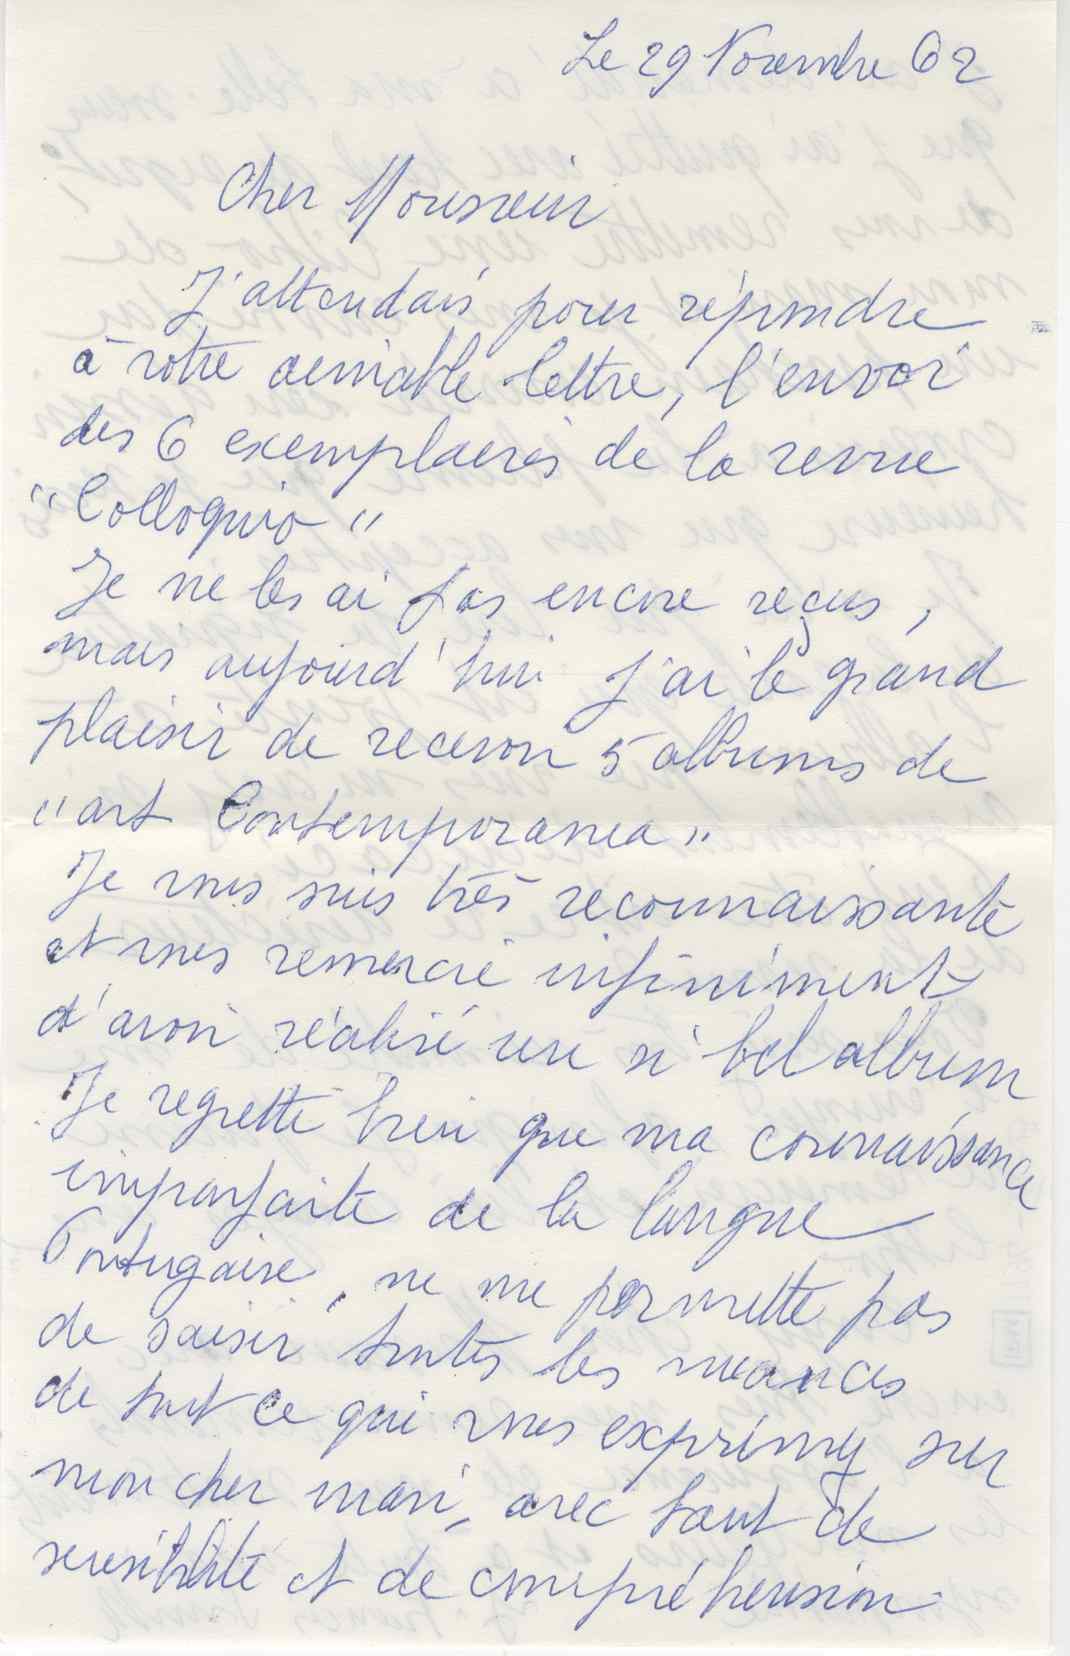 Le 29 Novembre 62
Cher Monsieur
J'attendais pour répondre
à votre aimable lettre, l'envoi
des 6 exemplaires de la revue
"Colloquio"
Je ne les ai pas encore reçus,
mais aujourd'hui j'ai le grand
plaisir de recevoir 5 albums de
"art Contemporanea"
Je vous suis très reconnaissante
et vous remercie infiniment
d'avoir réalisé un si bel album
Je regrette bien que ma connaissance
imparfaite de la langue
Portugaise, ne me permette pas
de saisir toutes les nuances
de tout ce que vous exprimez sur
mon cher mari, avec tant de
sensibilité et de compréhension.